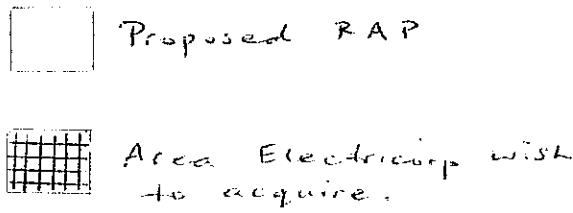 Proposed RAP
Area Electricorp wish
to acquire.